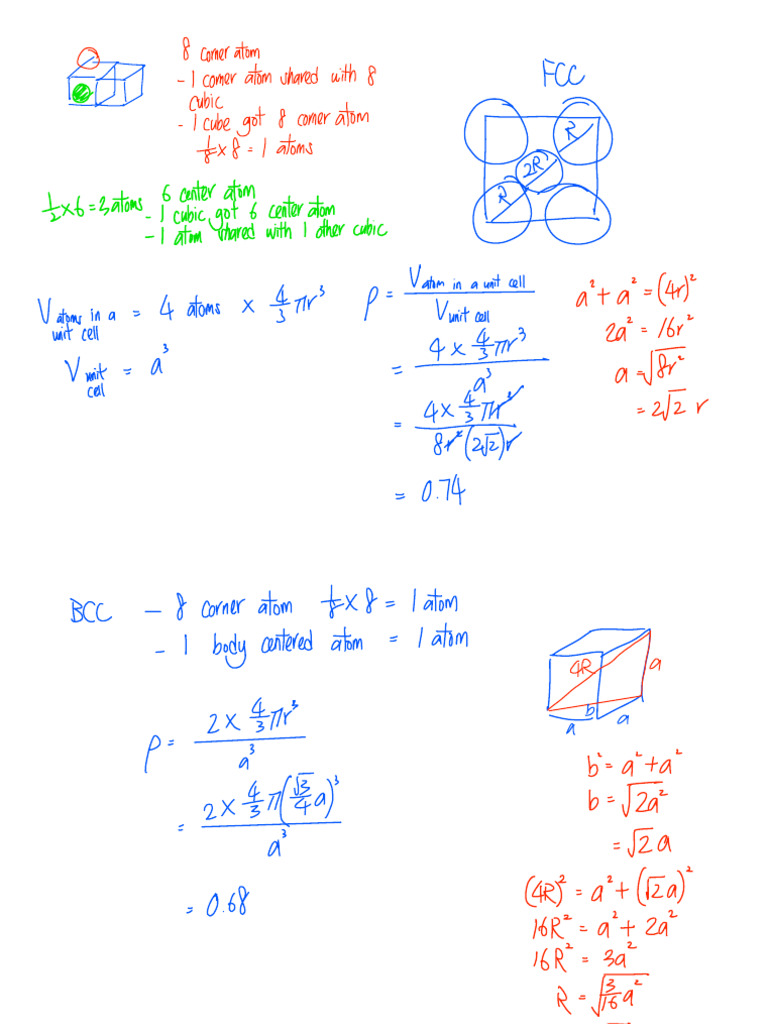 8 corner atom
- 1 corner atom shared with 8
cubic
- 1 cube got 8 corner atom
1/8 × 8 = 1 atoms
FCC
R
2R
R
1/2 × 6 = 3 atoms
6 center atom
- 1 cubic got 6 center atom
- 1 atom shared with 1 other cubic
V atoms in a unit cell = 4 atoms × 4/3 πr³
V unit cell = a³
ρ = V atom in a unit cell / V unit cell
= 4 × 4/3 πr³ / a³
= 4 × 4/3 πr³ / 8r²(2√2)r
= 0.74
a² + a² = (4r)²
2a² = 16r²
a = √8r²
= 2√2 r
BCC - 8 corner atom 1/8 × 8 = 1 atom
- 1 body centered atom = 1 atom
ρ = 2 × 4/3 πr³ / a³
= 2 × 4/3 π(√3/4 a)³ / a³
= 0.68
4R
a
b
a
a
b² = a² + a²
b = √2a²
= √2 a
(4R)² = a² + (√2a)²
16R² = a² + 2a²
16R² = 3a²
R = √3/16 a²